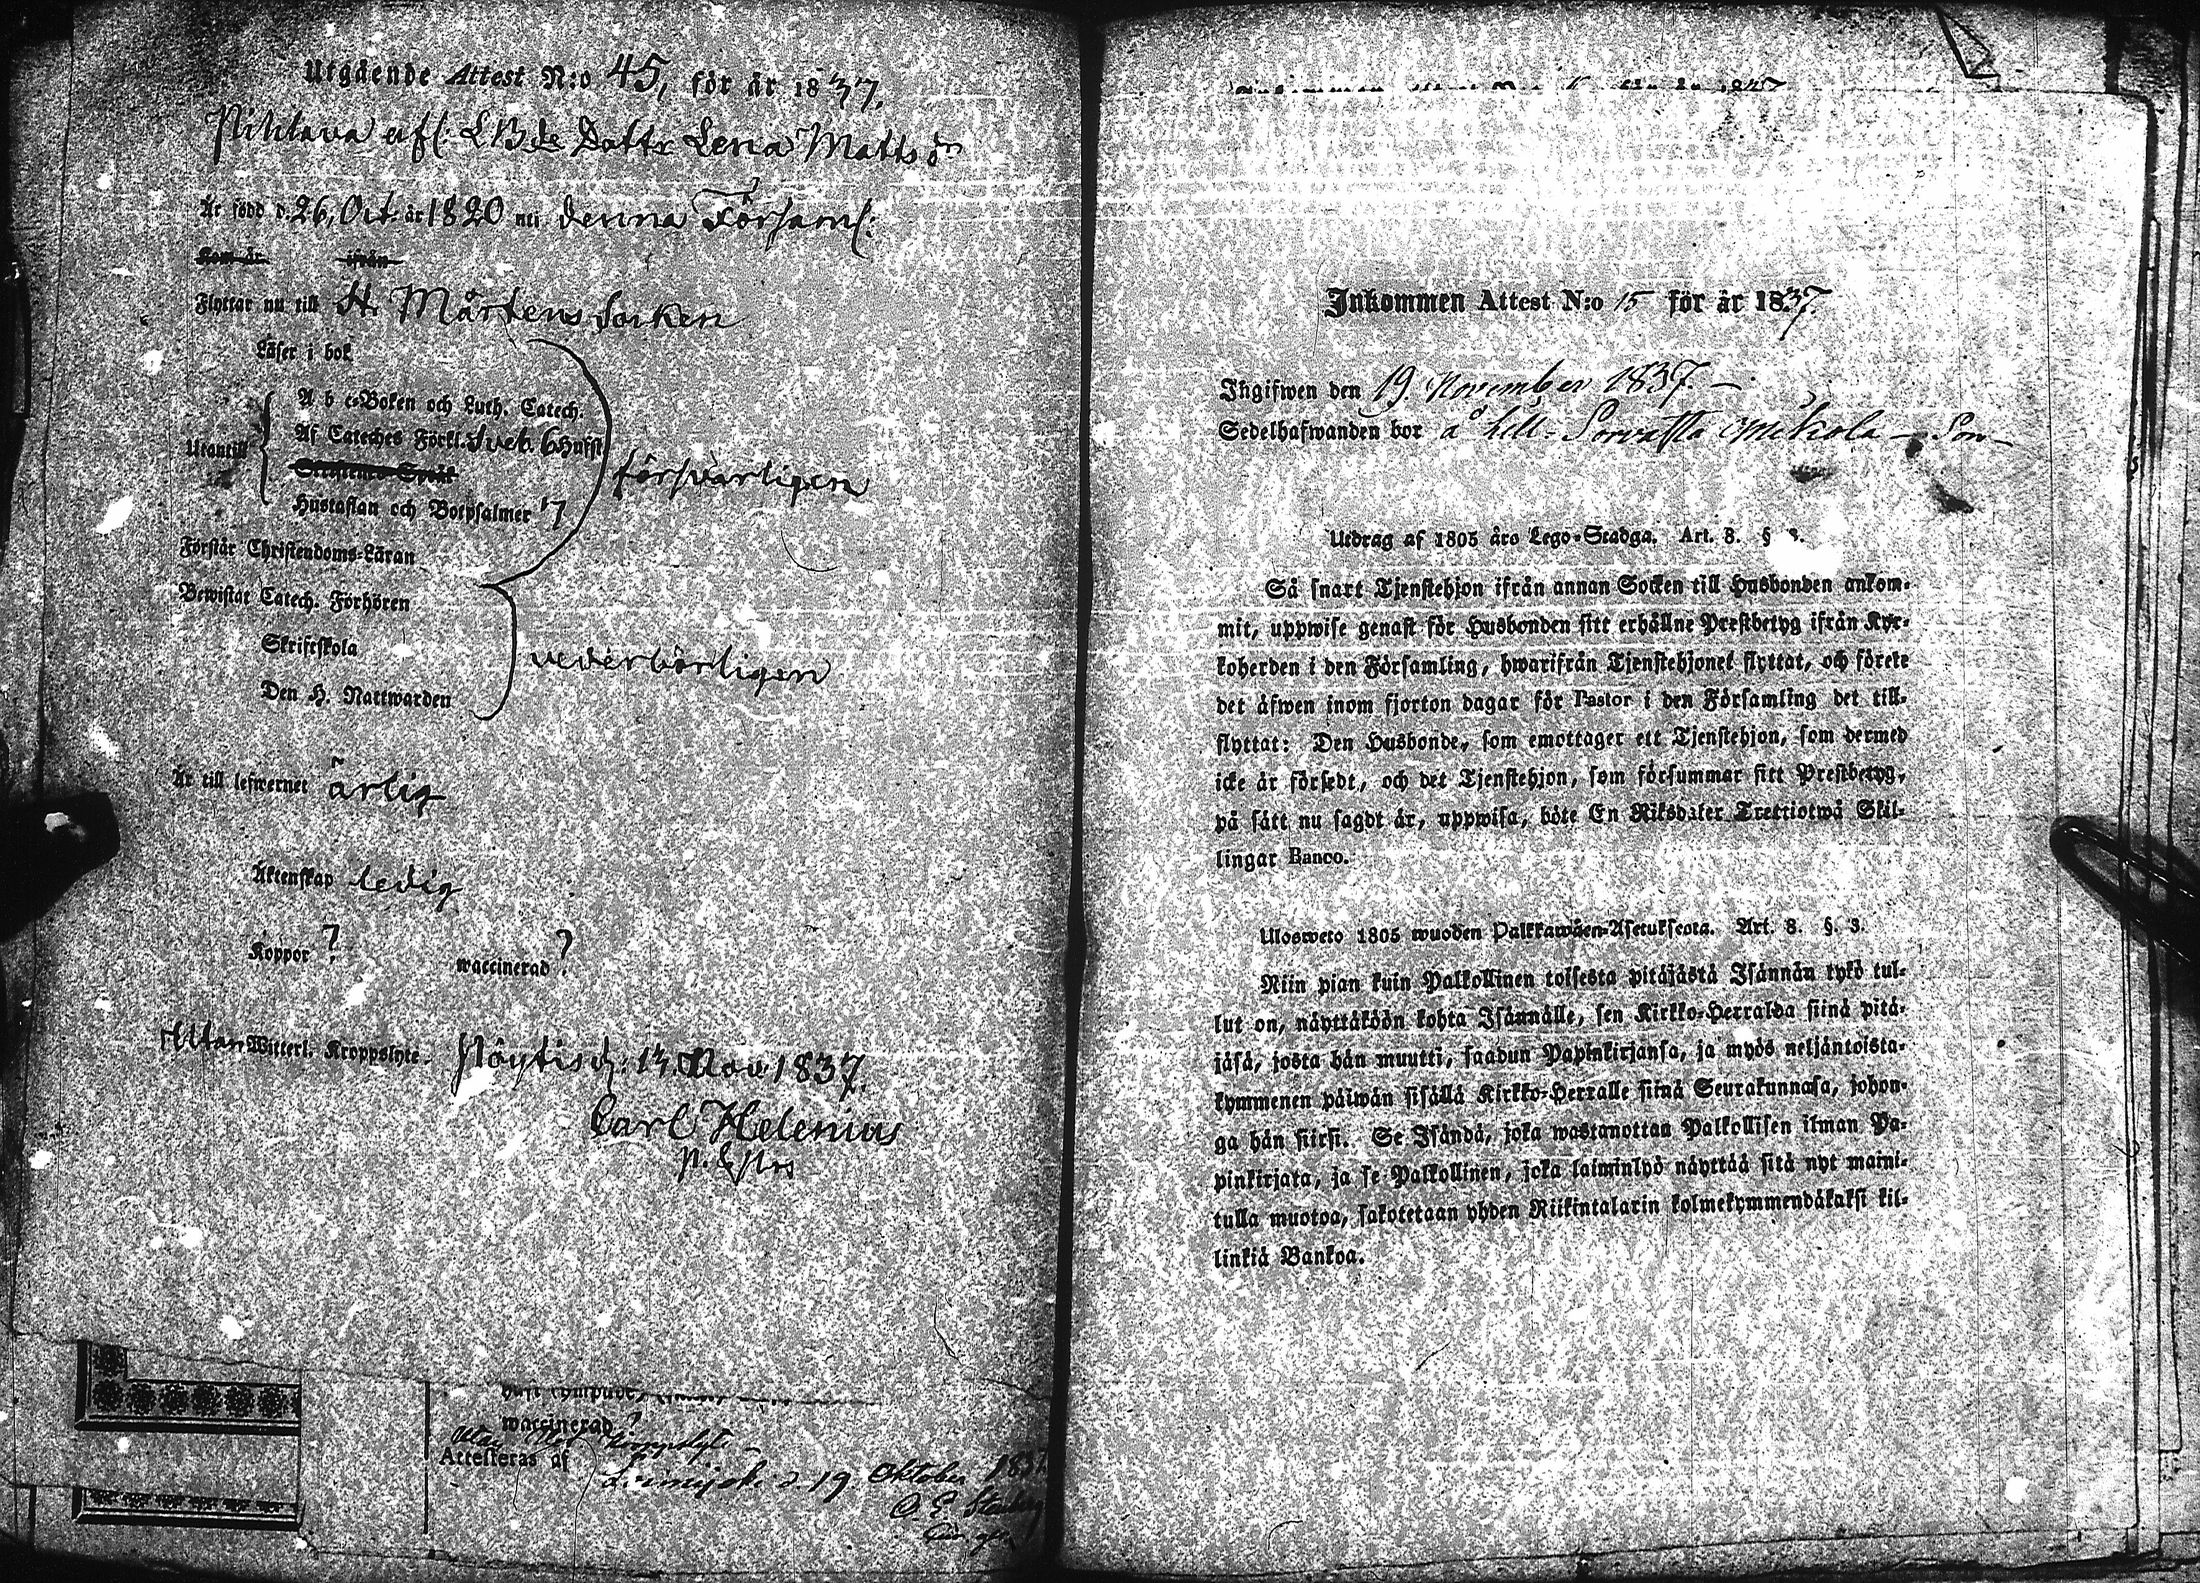 Utgående Attest N:o 45, för år 1837.
afl. Dottr Lena Matts dr
Är född d. 26, Oct. år 1820 uti denna Församl:
Kom år ifrån
Flyttar nu till St Mårtens Socken
Läser i bok
A b c-Boken och Luth. Catech.
Utantill Af Cateches Förkl. Sveb. 6 Hufst.
försvarligen
Hustaflan och Botpsalmer 7
Förstår Christendoms-Läran
Bewistat Catech. Förhören
Skriftskola
vederbörligen
Den H. Nattwarden
Är till lefwernet ärlig
Äktenskap ledig
Koppor ? waccinerad ?
Utan Witterl. Kroppslyte. Pöytis d: 14. Nov. 1837.
Carl Helenius
waccinerad ?
Utan Kroppslyte
Attesteras af d 19 Oktober 1837
O. E.
Inkommen Attest N:o 15 för år 1837.
Ingifwen den 19. November 1837. –
Sedelhafwanden bor å
Utdrag af 1805 års Lego-Stadga. Art. 8. §
Så snart Tjenstehjon ifrån annan Socken till Husbonden ankom-
mit, uppwise genast för Husbonden sitt erhållne Prestbetyg ifrån Kyr-
koherden i den Församling, hwarifrån Tjenstehjonet flyttat, och förete
det äfwen inom fjorton dagar för Pastor i den Församling det till-
flyttat: Den Husbonde, som emottager ett Tjenstehjon, som dermed
icke är försedt, och det Tjenstehjon, som försummar sitt Prestbetyg,
på sätt nu sagdt är, uppwisa, böte En Riksdaler Trettiotwå Skil-
lingar Banco.
Ulosweto 1805 wuoden Palkkawäen-Asetuksesta. Art. 8. §. 3.
Niin pian kuin Palkollinen toisesta pitäjästä Isännän tykö tul-
lut on, näyttäköön kohta Isännälle, sen Kirkko-Herralda siinä pitä-
jäsä, josta hän muutti, saadun Papinkirjansa, ja myös neljäntoista-
kymmenen päiwän sisällä Kirkko-Herralle siinä Seurakunnasa, johon-
ga hän siirsi. Se Isändä, joka wastanottaa Palkollisen ilman Pa-
pinkirjata, ja se Palkollinen, joka laiminlyö näyttää sitä nyt maini-
tulla muotoa, sakotetaan yhden Riikintalarin kolmekymmendäkaksi kil-
linkiä Bankoa.